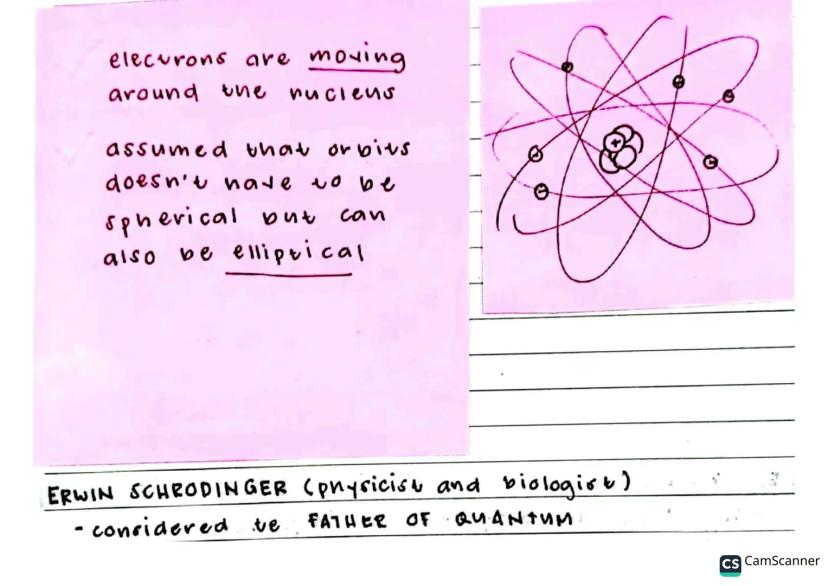 electrons are moving
around the nucleus
assumed that orbits
doesn't have to be
spherical but can
also be elliptical
ERWIN SCHRODINGER (physicist and biologist)
- considered te FATHER OF QUANTUM
CS CamScanner